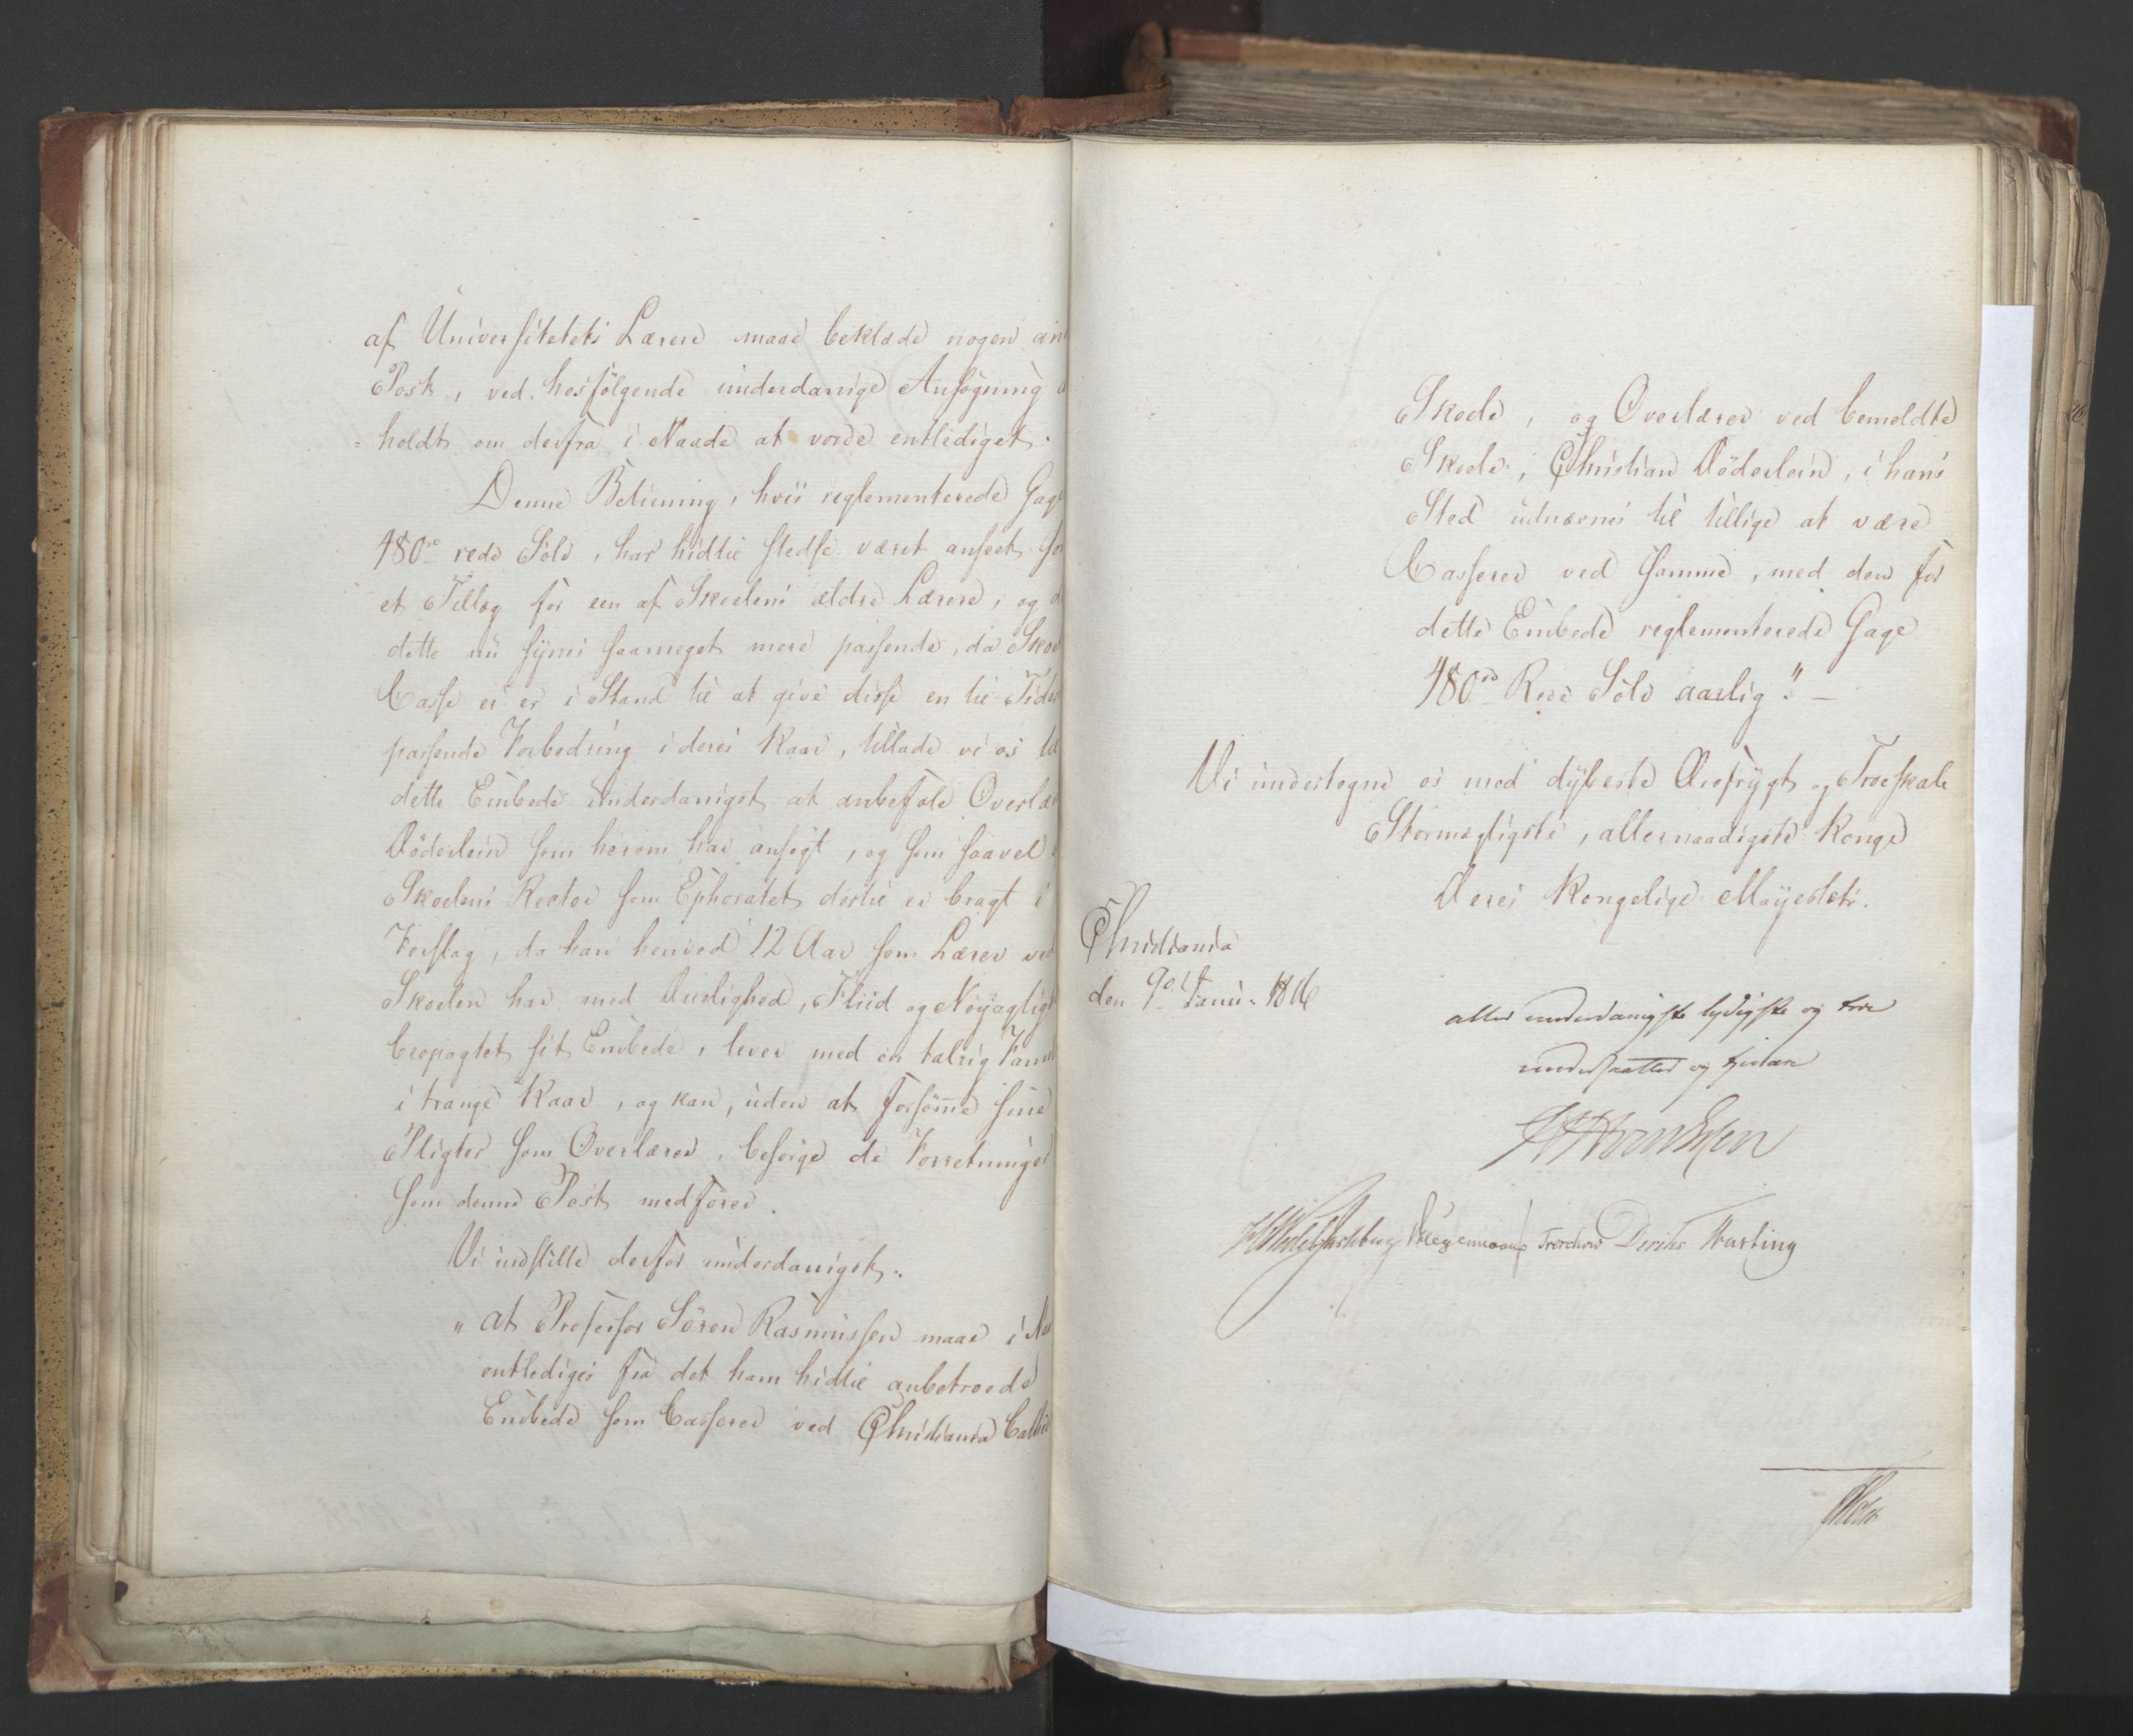 af Universitetets Lærere maae beklæde nogen an
Post, ved hosfølgende underdanige Ansøgning
= holdt om derfra i Naade at vorde entlediget.
Denne Betiening, hviis reglementerede Gage
480 rd rede Sölv, har hidtil stedse været anseet for
et Tillæg for een af Skoelens ældre Lærere, og
dette nu synes saameget mere passende, da Skoe
Casse ei er i Stand til at give disse en til Tider
passende Forbedring i deres Kaar, tillade vi os til
dette Embede underdanigst at anbefale Overlær
Döderlein som herom har ansøgt, og som saavel
Skoelens Rector som Ephoratet dertil er bragt i
Forslag, da han henved 12 Aar som Lærer ved
Skoelen har med Duelighed, Fliid og Nøyagtigh
beopagtet sit Embede, lever med en talrig Fami
i trange Kaar, og kan, uden at forsømme sine
Pligter som Overlærer, besørge de Forretninger
som denne Post medfører.
Vi indstille derfor underdanigst:
" at Professor Sören Rasmussen maae i Na
entlediges fra det ham hidtil anbetroede
Embede som Casserer ved Christiania Cathe
Skole, og Overlærer ved bemeldte
Skole, Christian Döderlein, i hans
Sted udnævnes til tillige at være
Casserer ved samme, med den for
dette Embede reglementerede Gage
480 rd Rede Sölv aarlig." —
Vi undertegne os med dybeste Ærefrygt og Troeskab
Stormægtigste, allernaadigste Konge
Deres Kongelige Mayestæts.
Christiania
den 9de Janu: 1816
allerunderdanigste lydigste og troe
undersaatter og tjenere
Hegermann Treschow Diriks Motzfeldt